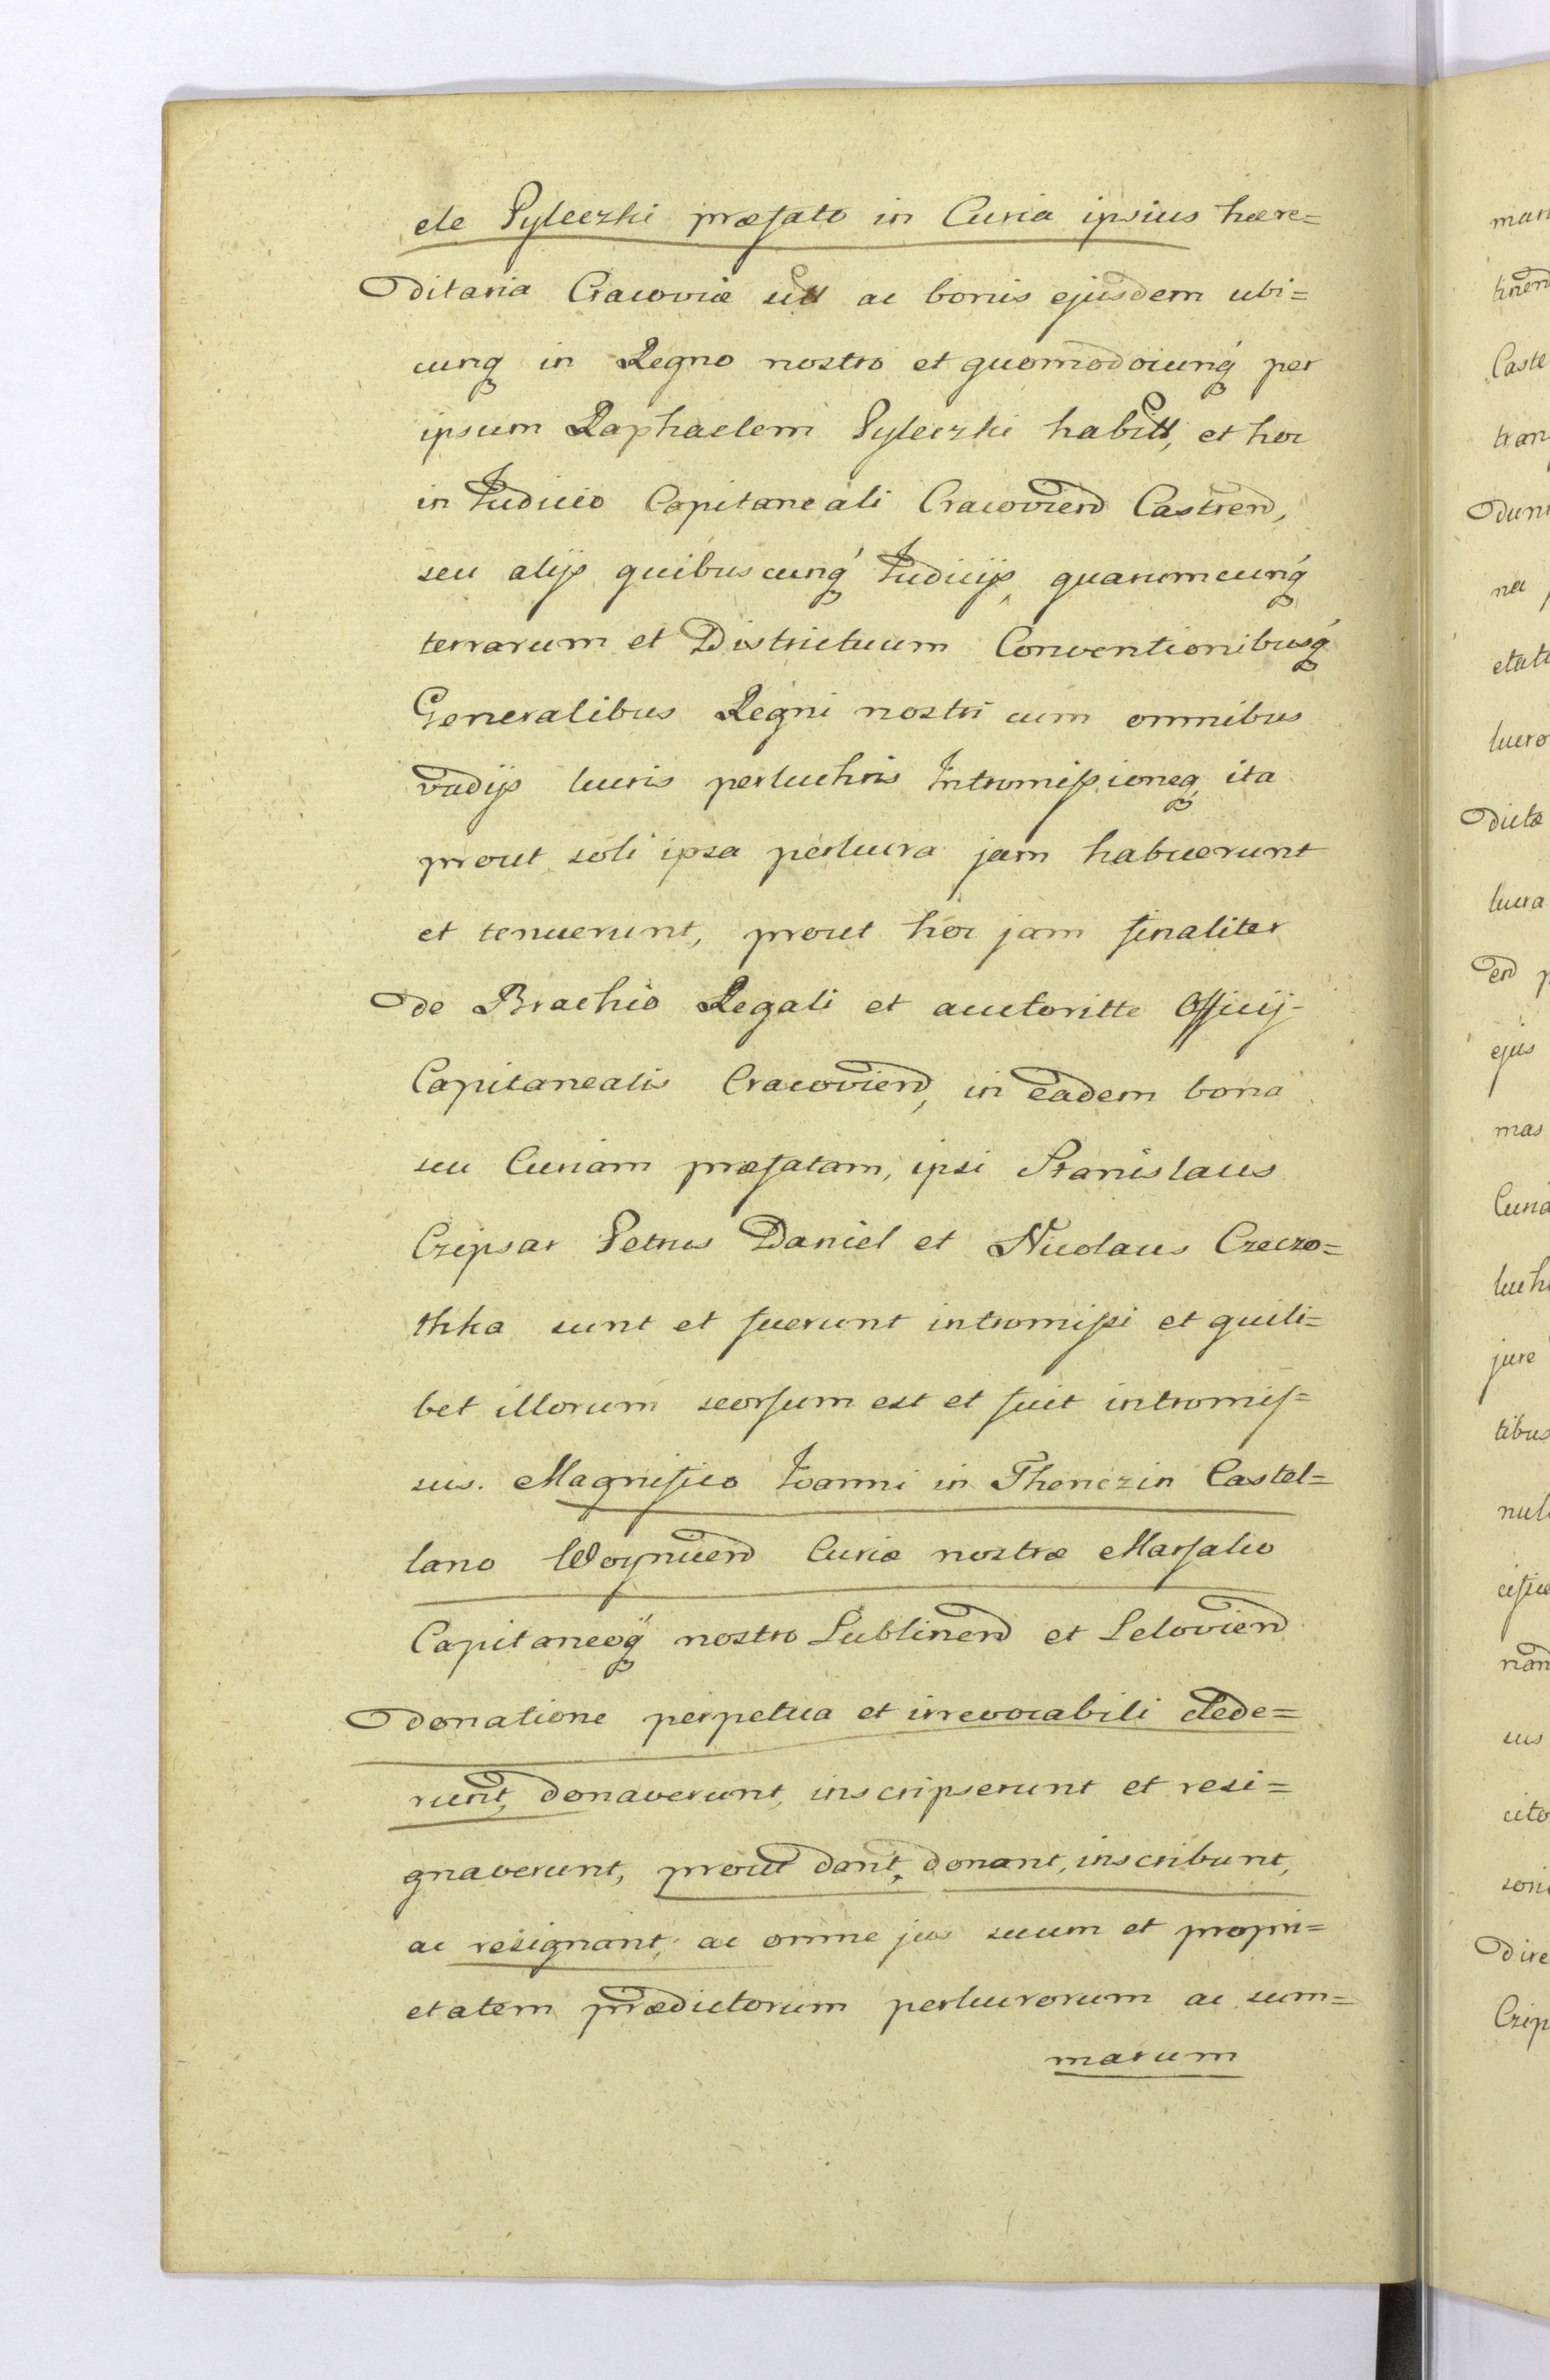 ele Pyleczki præfato in Curia ipsius hære=
ditaria Cracoviæ sitt ac bonis ejusdem ubi=
cunq in Regno nostro et quomodocunq per
ipsum Raphaelem Pyleczki habitt, et hoc
in Judicio Capitaneali Cracovien Castren,
seu alijs quibuscunq Judicijs, quarumcunq
terrarum et Districtuum Conventionibusq
Generalibus Regni nostri cum omnibus
vadijs lucris perlucris Intromissioneq ita
prout soli ipsa perlucra jam habuerunt
et tenuerunt, prout hoc jam finaliter
de Brachio Regali et auctoritte Officij
Capitanealis Cracovien, in eadem bona
seu Curiam præfatam, ipsi Stanislaus
Czipsar Petrus Daniel et Nicolaus Czeczo=
thka sunt et fuerunt intromissi et quili=
bet illorum seorsum est et fuit intromis=
sus. Magnifico Joanni in Thenczin Castel=
lano Woynicien Curiæ nostræ Marsalco
Capitaneoq nostro Lublinen et Lelovien
donatione perpetua et irrevocabili dede=
runt, donaverunt, inscripserunt et resi=
gnaverunt, prout dant, donant, inscribunt,
ac resignant, ac omne jus suum et propri=
etatem prædictorum perlucrorum ac sum=
marum